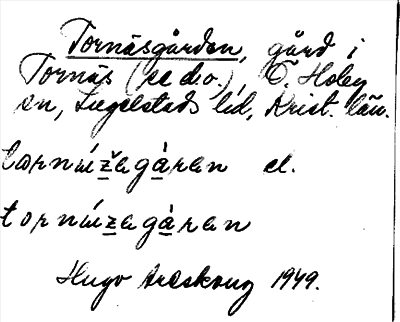 Tornäsgården, gård i
Tornäs (se d.o.), Ö. Hoby
sn, Ingelstads hd, Krist. län.
tornǘžagàren el.
tornǘzagàren
Hugo Areskoug 1949.